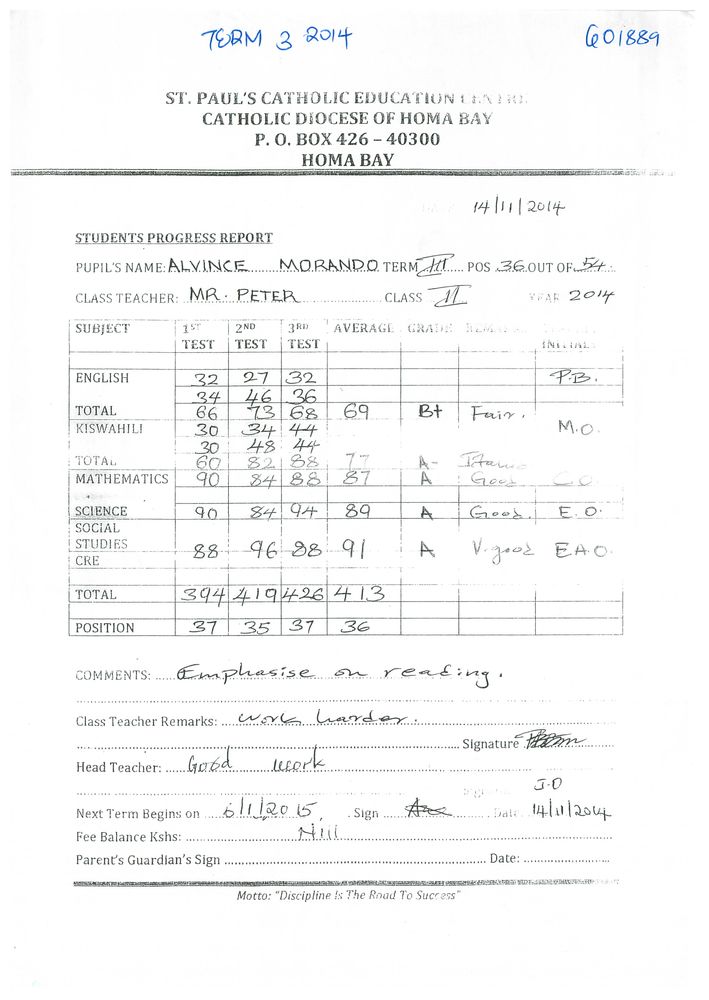 TERM 3 2014 601889
ST. PAUL'S CATHOLIC EDUCATION CENTRE
CATHOLIC DIOCESE OF HOMA BAY
P. O. BOX 426 – 40300
HOMA BAY
DATE 14/11/2014
STUDENTS PROGRESS REPORT
PUPIL'S NAME: ALVINCE MORANDO TERM III POS 36 OUT OF 54
CLASS TEACHER: MR. PETER CLASS II YEAR 2014
SUBJECT 1ST TEST 2ND TEST 3RD TEST AVERAGE GRADE INITIAL
ENGLISH 32 27 32 P.B.
34 46 36
TOTAL 66 73 68 69 B+ Fair.
KISWAHILI 30 34 44 M.O.
30 48 44
TOTAL 60 82 88 77 A-
MATHEMATICS 90 84 88 87 A Good C.O.
SCIENCE 90 84 94 89 A Good. E.O.
SOCIAL
STUDIES 88 96 88 91 A V.good E.A.O.
CRE
TOTAL 394 419 426 413
POSITION 37 35 37 36
COMMENTS: Emphasise on reading.
Class Teacher Remarks: Work harder.
Signature
Head Teacher: Good work
J.O
Next Term Begins on 6/1/2015 Sign Date: 14/11/2014
Fee Balance Kshs: Nill
Parent's Guardian's Sign Date:
Motto: "Discipline Is The Road To Success"